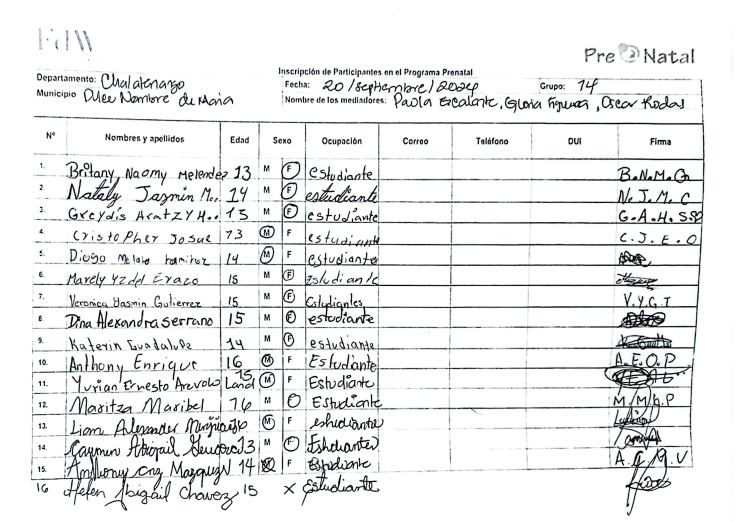 FdW
Pre Natal
Inscripción de Participantes en el Programa Prenatal
Departamento: Chalatenango Fecha: 20/septiembre/2024 Grupo: 14
Municipio Dulce Nombre de Maria Nombre de los mediadores: Paola Escalante, Gloria Figueroa, Oscar Rodas
Nº Nombres y apellidos Edad Sexo Ocupación Correo Teléfono DUI Firma
1. Britany Naomy Melendez 13 M F estudiante B.N.M.G
2. Nataly Jazmin M.. 14 M F estudiante N.J.M.C
3. Greydis AratzY H.. 13 M F estudiante G.A.H.
4. CristoPher Josue 13 M F estudiante C.J.E.O
5. Diogo Ramirez 14 M F estudiante
6. Marely Erazo 15 M F Estudiante
7. Veronica Yasmin Gutierrez 15 M F Estudiantes V.Y.G.T
8. Dina Alexandra Serrano 15 M F estudiante
9. Katerin Guadalupe 14 M F estudiante
10. Anthony Enrique 16 M F Estudiante A.E.O.P
11. Yurian Ernesto Arevalo 15 M F Estudiante
12. Maritza Maribel 16 M Estudiante
13. Liam Alexander M F estudiante
14. Carmen Abigail 13 M F Estudiantes
15. Anthony 14 F Estudiante
16 Helen Abigail Chavez 15 X Estudiante